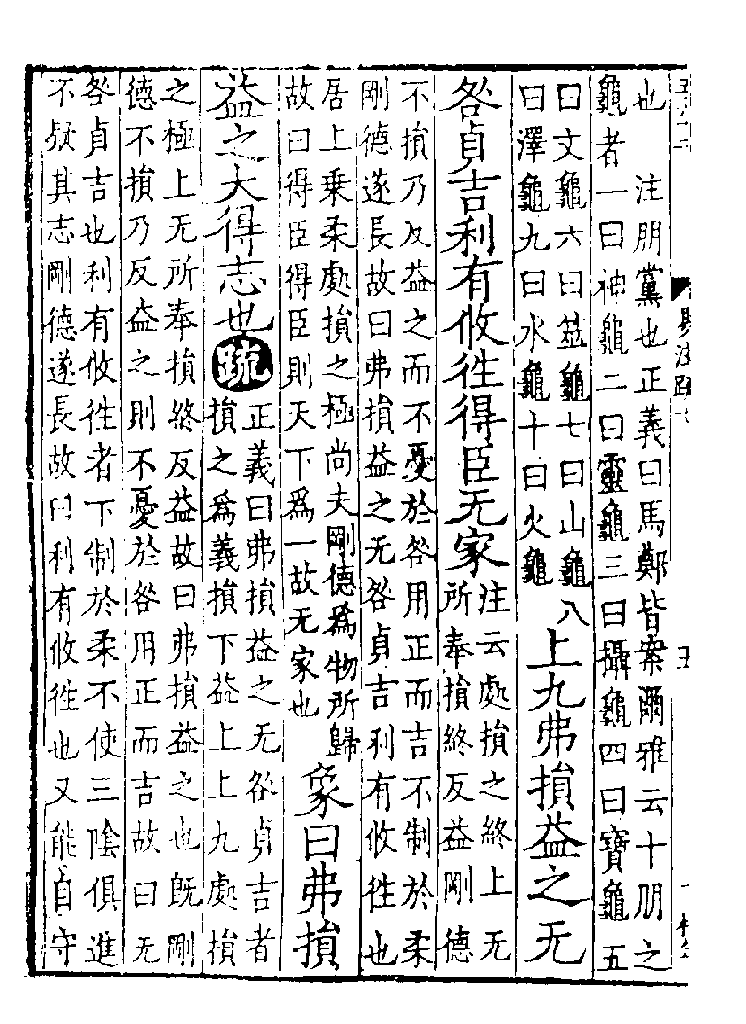 也　注朋黨也正義曰馬鄭皆案爾雅云十朋之
龜者一曰神龜二曰靈龜三曰攝龜四曰寶龜五
曰文龜六曰筮龜七曰山龜八
曰澤龜九曰水龜十曰火龜
上九弗損益之无
咎貞吉利有攸徃得臣无家
注云處損之終上无
所奉損終反益剛德
不損乃反益之而不憂於咎用正而吉不制於柔
剛德遂長故曰弗損益之无咎貞吉利有攸徃也
居上乘柔處損之極尚夫剛德爲物所歸
故曰得臣得臣則天下爲一故无家也
象曰弗損
益之大得志也
疏
正義曰弗損益之无咎貞吉者
損之爲義損下益上上九處損
之極上无所奉損終反益故曰弗損益之也既剛
德不損乃反益之則不憂於咎用正而吉故曰无
咎貞吉也利有攸徃者下制於柔不使三陰俱進
不疑其志剛德遂長故曰利有攸徃也又能自守